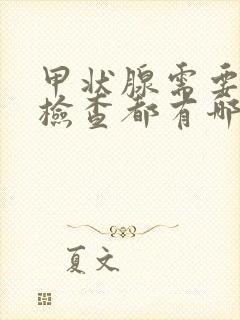 甲状腺需要
檢查都有哪
夏文